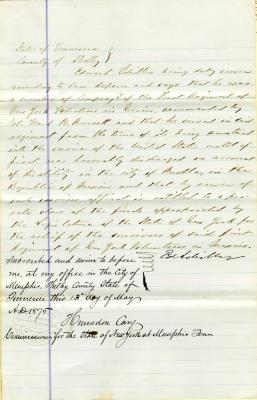 State of Tennessee
County of Shelby
Edward Schiller being duly sworn
according to law deposes and says that he was
a member of Company of the First Regiment of
New York Volunteers in Mexico, commanded by
Col. Ward B. Burnett and that he served in said
regiment from the time of its being mustered
into the service of the United States until
was honorably discharged on account
of disability in the city of Puebla, in the
Republic of Mexico and that by reason of
such service affiant is entitled to a pro
rata share of the funds appropriated by
the Legislature of the State of New York for
the relief of the survivors of said first
Regiment of New York Volunteers in Mexico.
Ed. Schiller
Subscribed and sworn to before
me, at my office in the City of
Memphis, Shelby County State of
Tennessee this 13th day of May
A.D. 1875
Harsdon Cary
Commissioner for the State of New York at Memphis Tenn